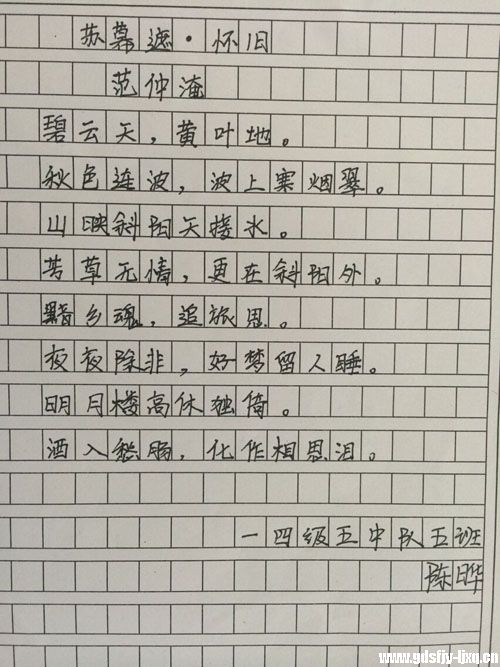 苏幕遮·怀旧
范仲淹
碧云天，黄叶地。
秋色连波，波上寒烟翠。
山映斜阳天接水。
芳草无情，更在斜阳外。
黯乡魂，追旅思。
夜夜除非，好梦留人睡。
明月楼高休独倚。
酒入愁肠，化作相思泪。
一四级五中队五班
陈晔
www.gdsfjy-ljxq.cn